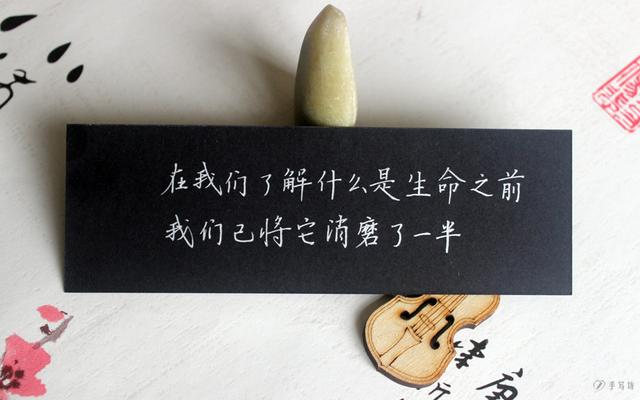 在我们了解什么是生命之前
我们已将它消磨了一半
手写坊